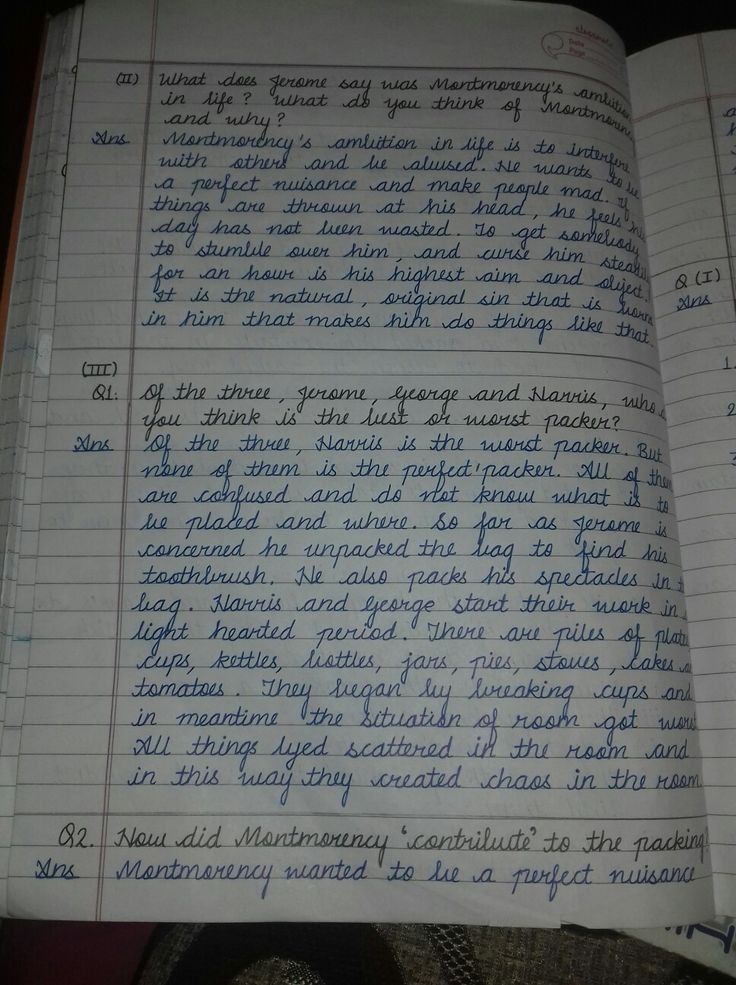 classmate
Date
Page
(II) What does Jerome say was Montmorency's
in life? What do you think of
and why?
Ans Montmorency's ambition in life is to interfere
with others and be abused. He wants to be
a perfect nuisance and make people mad. If
things are thrown at his head, he feels his
day has not been wasted. To get somebody
to stumble over him, and curse him
for an hour is his highest aim and object.
It is the natural, original sin that is born
in him that makes him do things like that.
(III)
Q1. Of the three, Jerome, George and Harris, who
you think is the best or worst packer?
Ans Of the three, Harris is the worst packer. But
none of them is the perfect packer. All of them
are confused and do not know what is to
be placed and where. So far as Jerome is
concerned he unpacked the bag to find his
toothbrush. He also packs his spectacles in
bag. Harris and George start their work in
light hearted period. There are piles of
cups, kettles, bottles, jars, pies, stoves, cakes
tomatoes. They began by breaking cups and
in meantime the situation of room got
All things lyed scattered in the room and
in this way they created chaos in the room.
Q2. How did Montmorency 'contribute' to the packing
Ans Montmorency wanted to be a perfect nuisance
Q (I)
Ans
1.
2
3